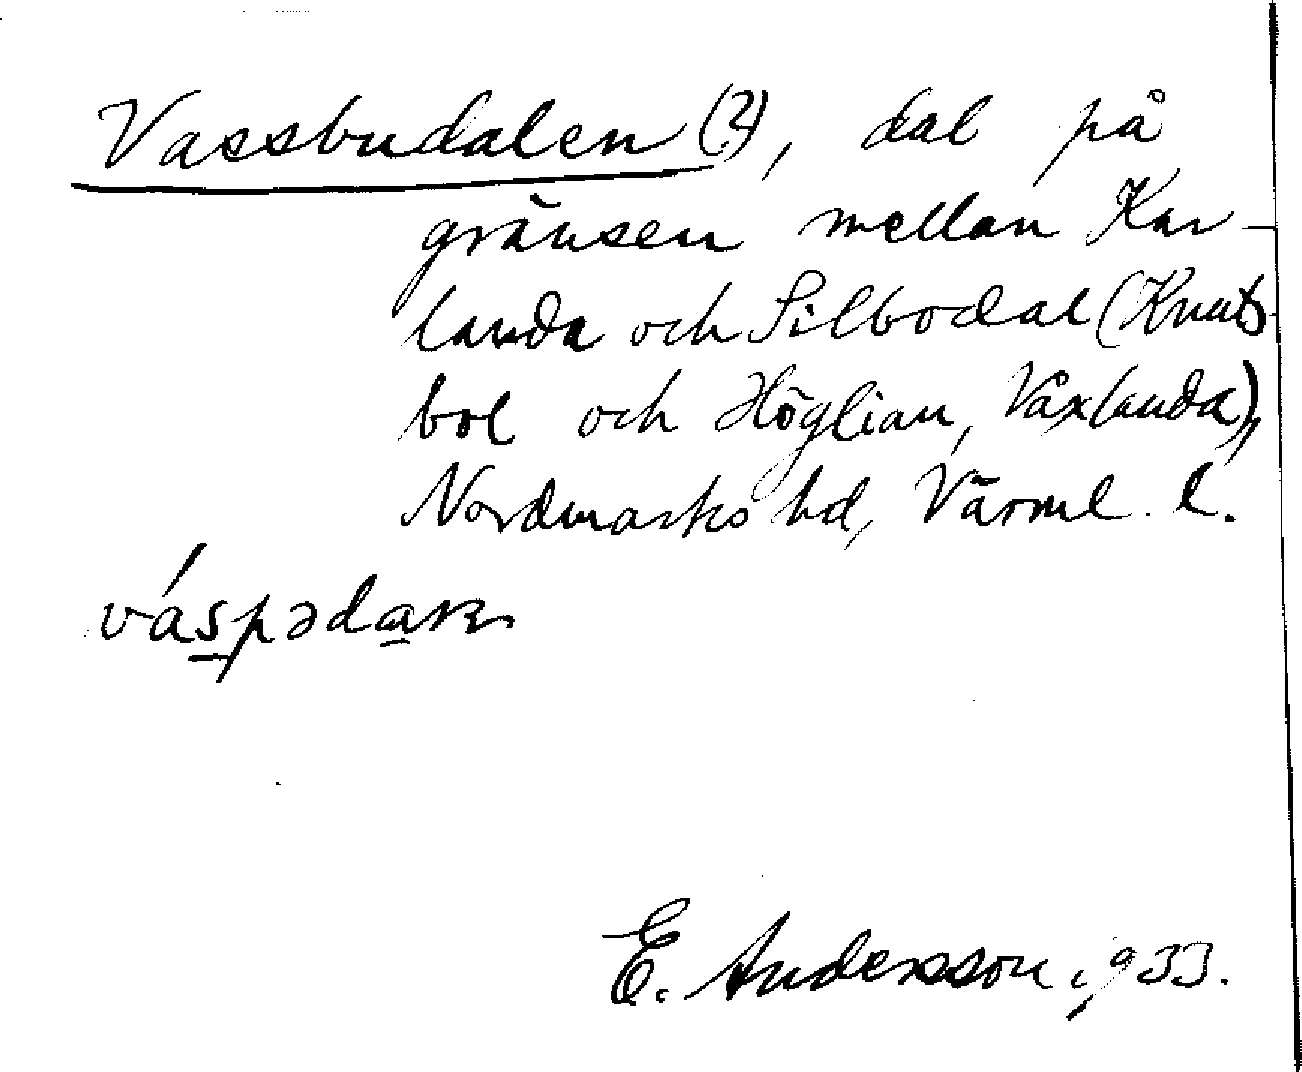 Vassbudalen (?), dal på
gränsen mellan Kar-
landa och Silbodal (Knuts-
bol och Höglian, Våxlanda),
Nordmarks hd, Värml. l.
váspədaɴ
E. Andersson 1933.